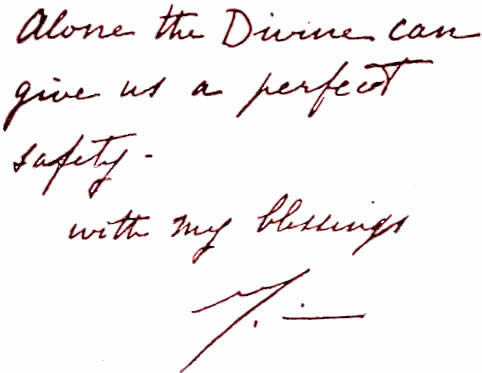 Alone the Divine can
give us a perfect
safety -
with my blessings